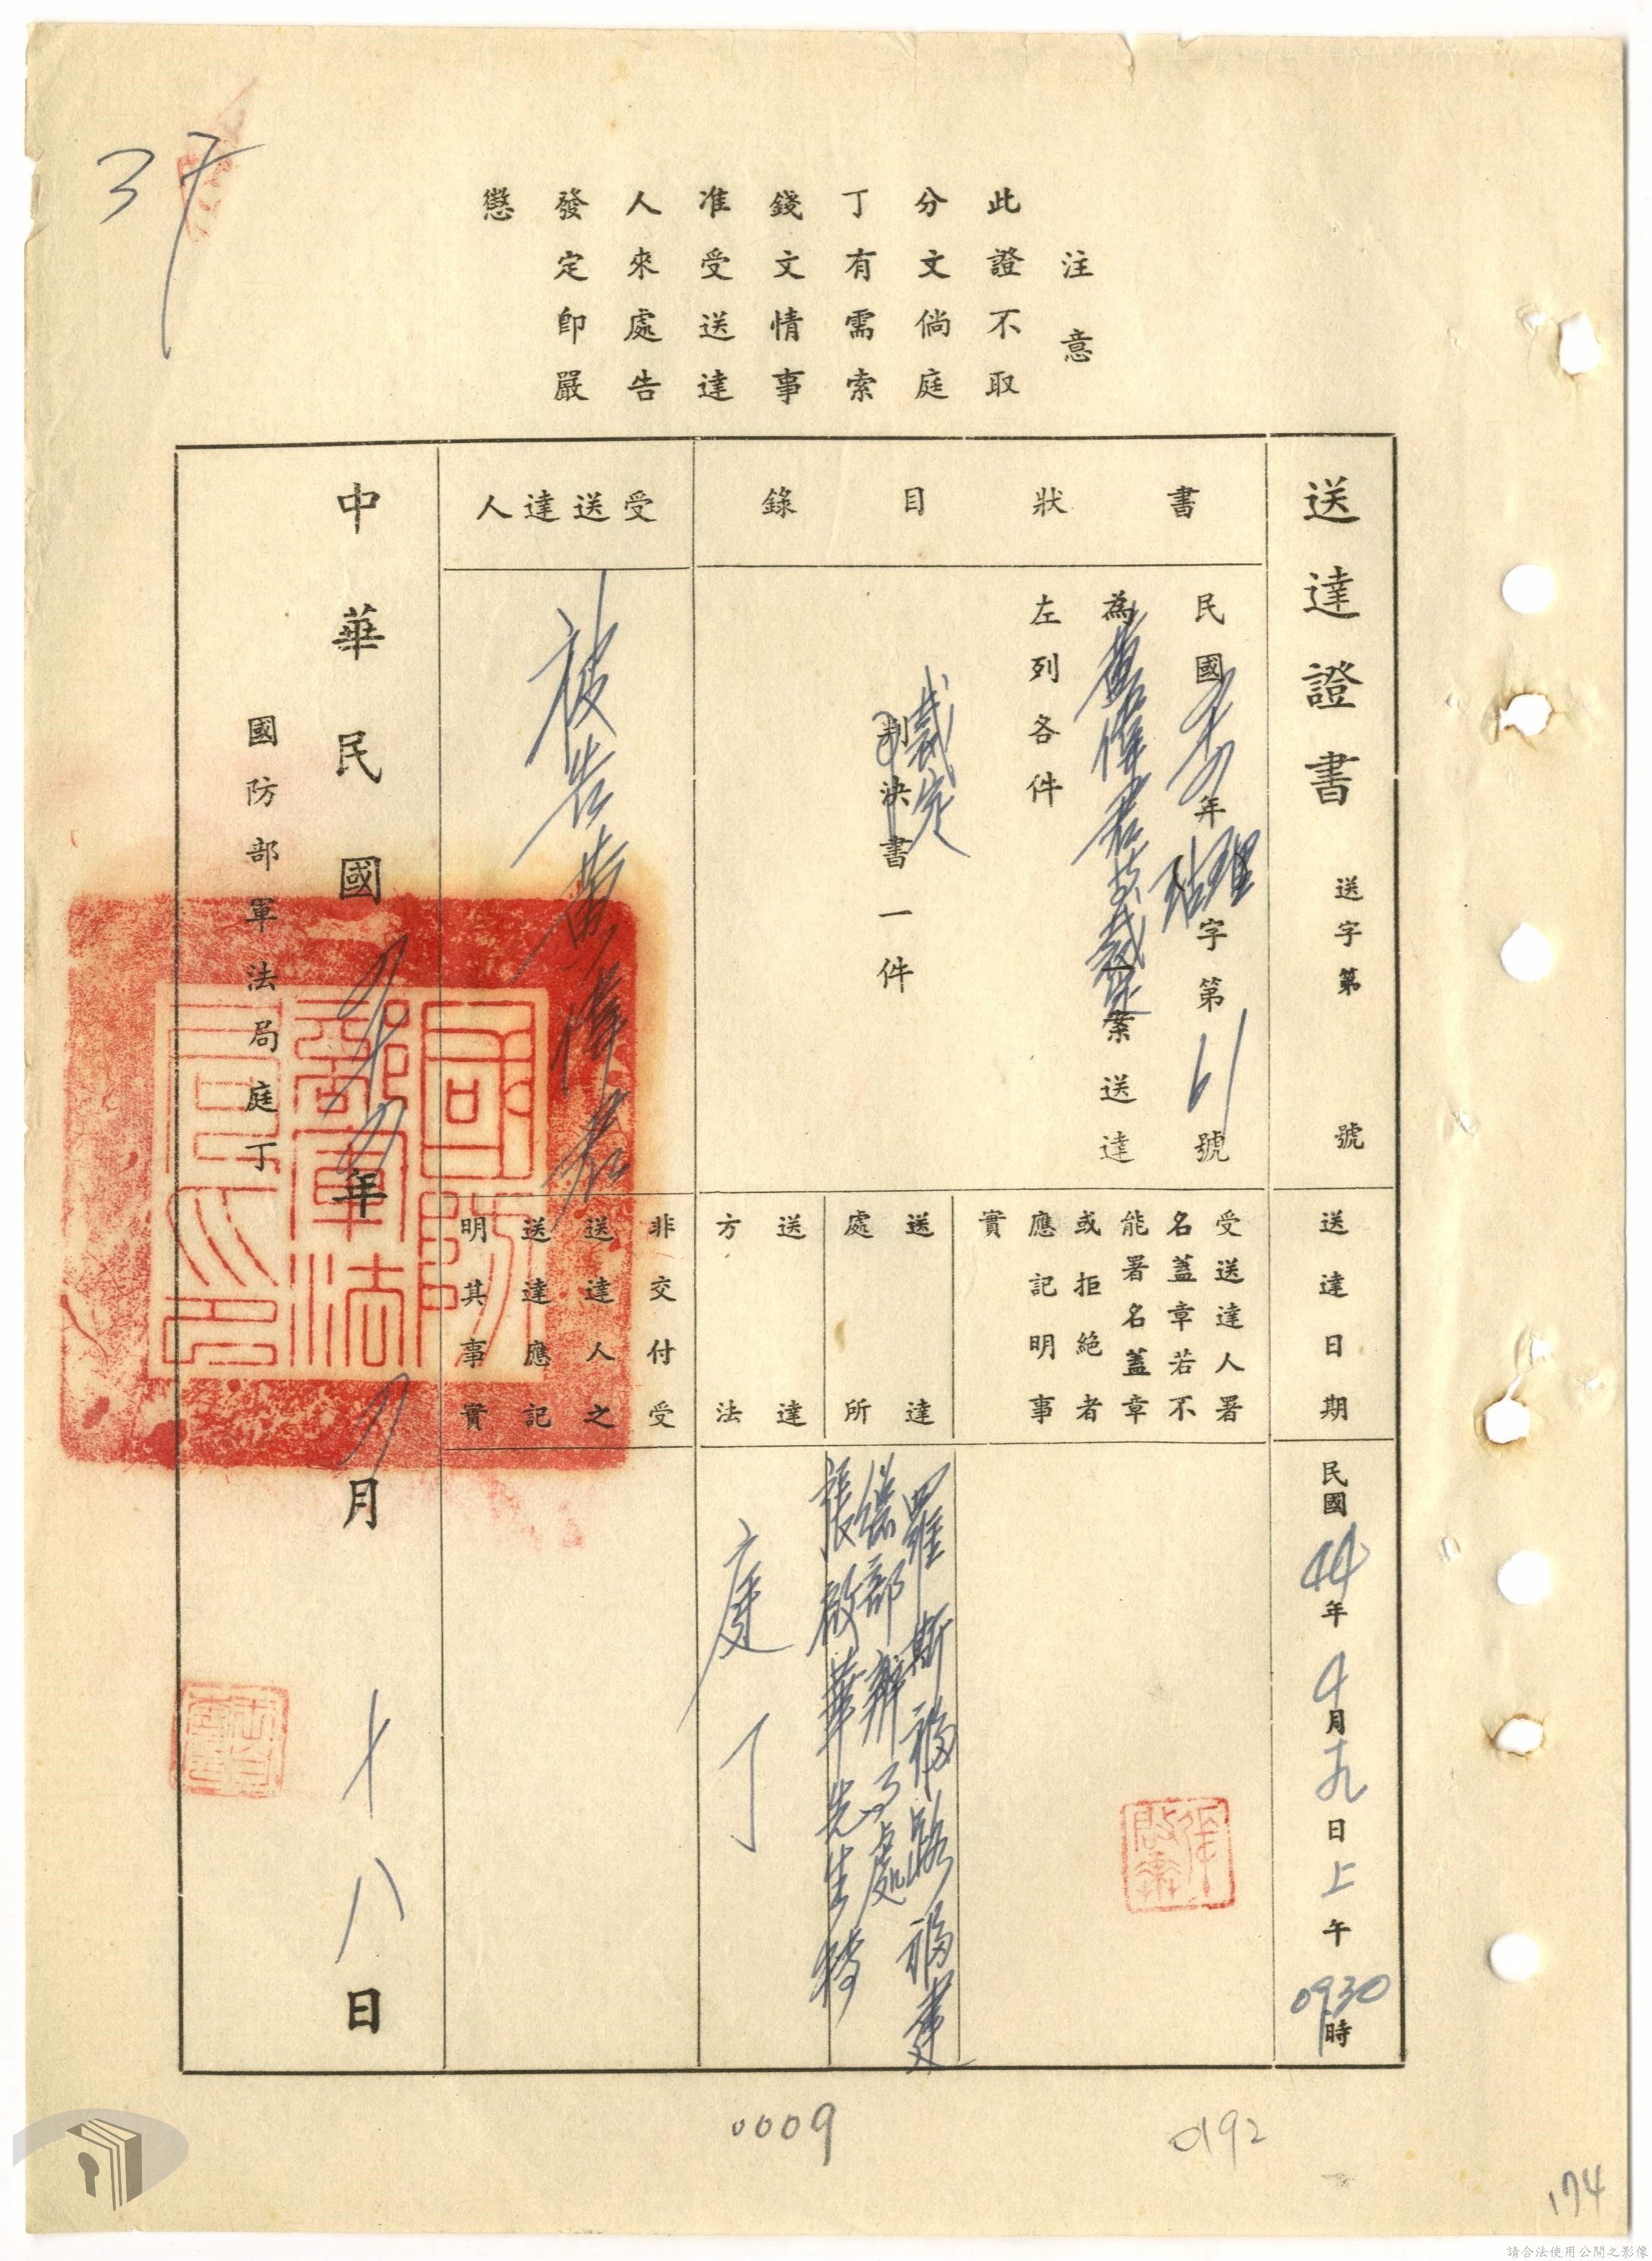 37
注意
此證不取
分文倘庭
丁有需索
錢文情事
准受送達
人來處告
發定卽嚴
懲
送達證書 送字第 號
書狀目錄
民國年字第61號
為黃偉君裁定一案送達
左列各件
裁定
判決書一件
受送達人
被告黃偉君
送達日期
民國44年4月19日上午0930時
受送達人署
名蓋章若不
能署名蓋章
或拒絶者
應記明事
實
送達處所
羅斯福路福建
張啟華先生轉
送達方法
庭丁
非交付受
送達人之
送達應記
明其事實
中華民國年月十八日
國防部軍法局庭丁
國防部軍法局印
0009
0192
174
請合法使用公開之影像